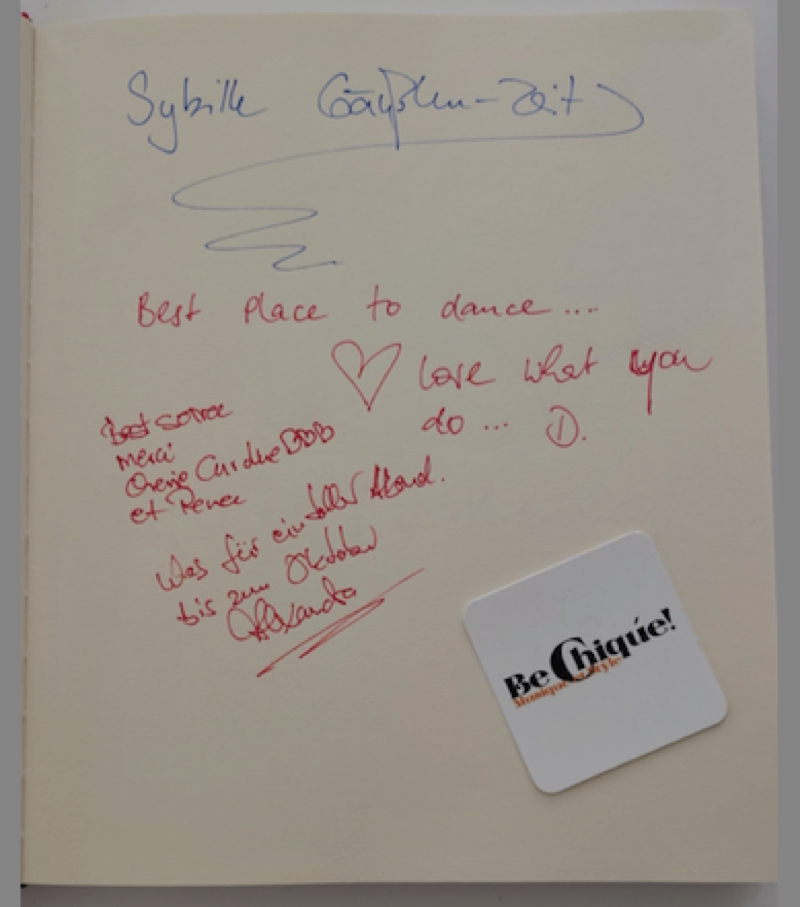 Sybille
Best Place to dance....
Love what you
do... D.
Best soirée
merci
et Renee
Was für ein toller Abend.
bis zum Oktober
Alexandra
Be Chiqúe!
Musique & Style